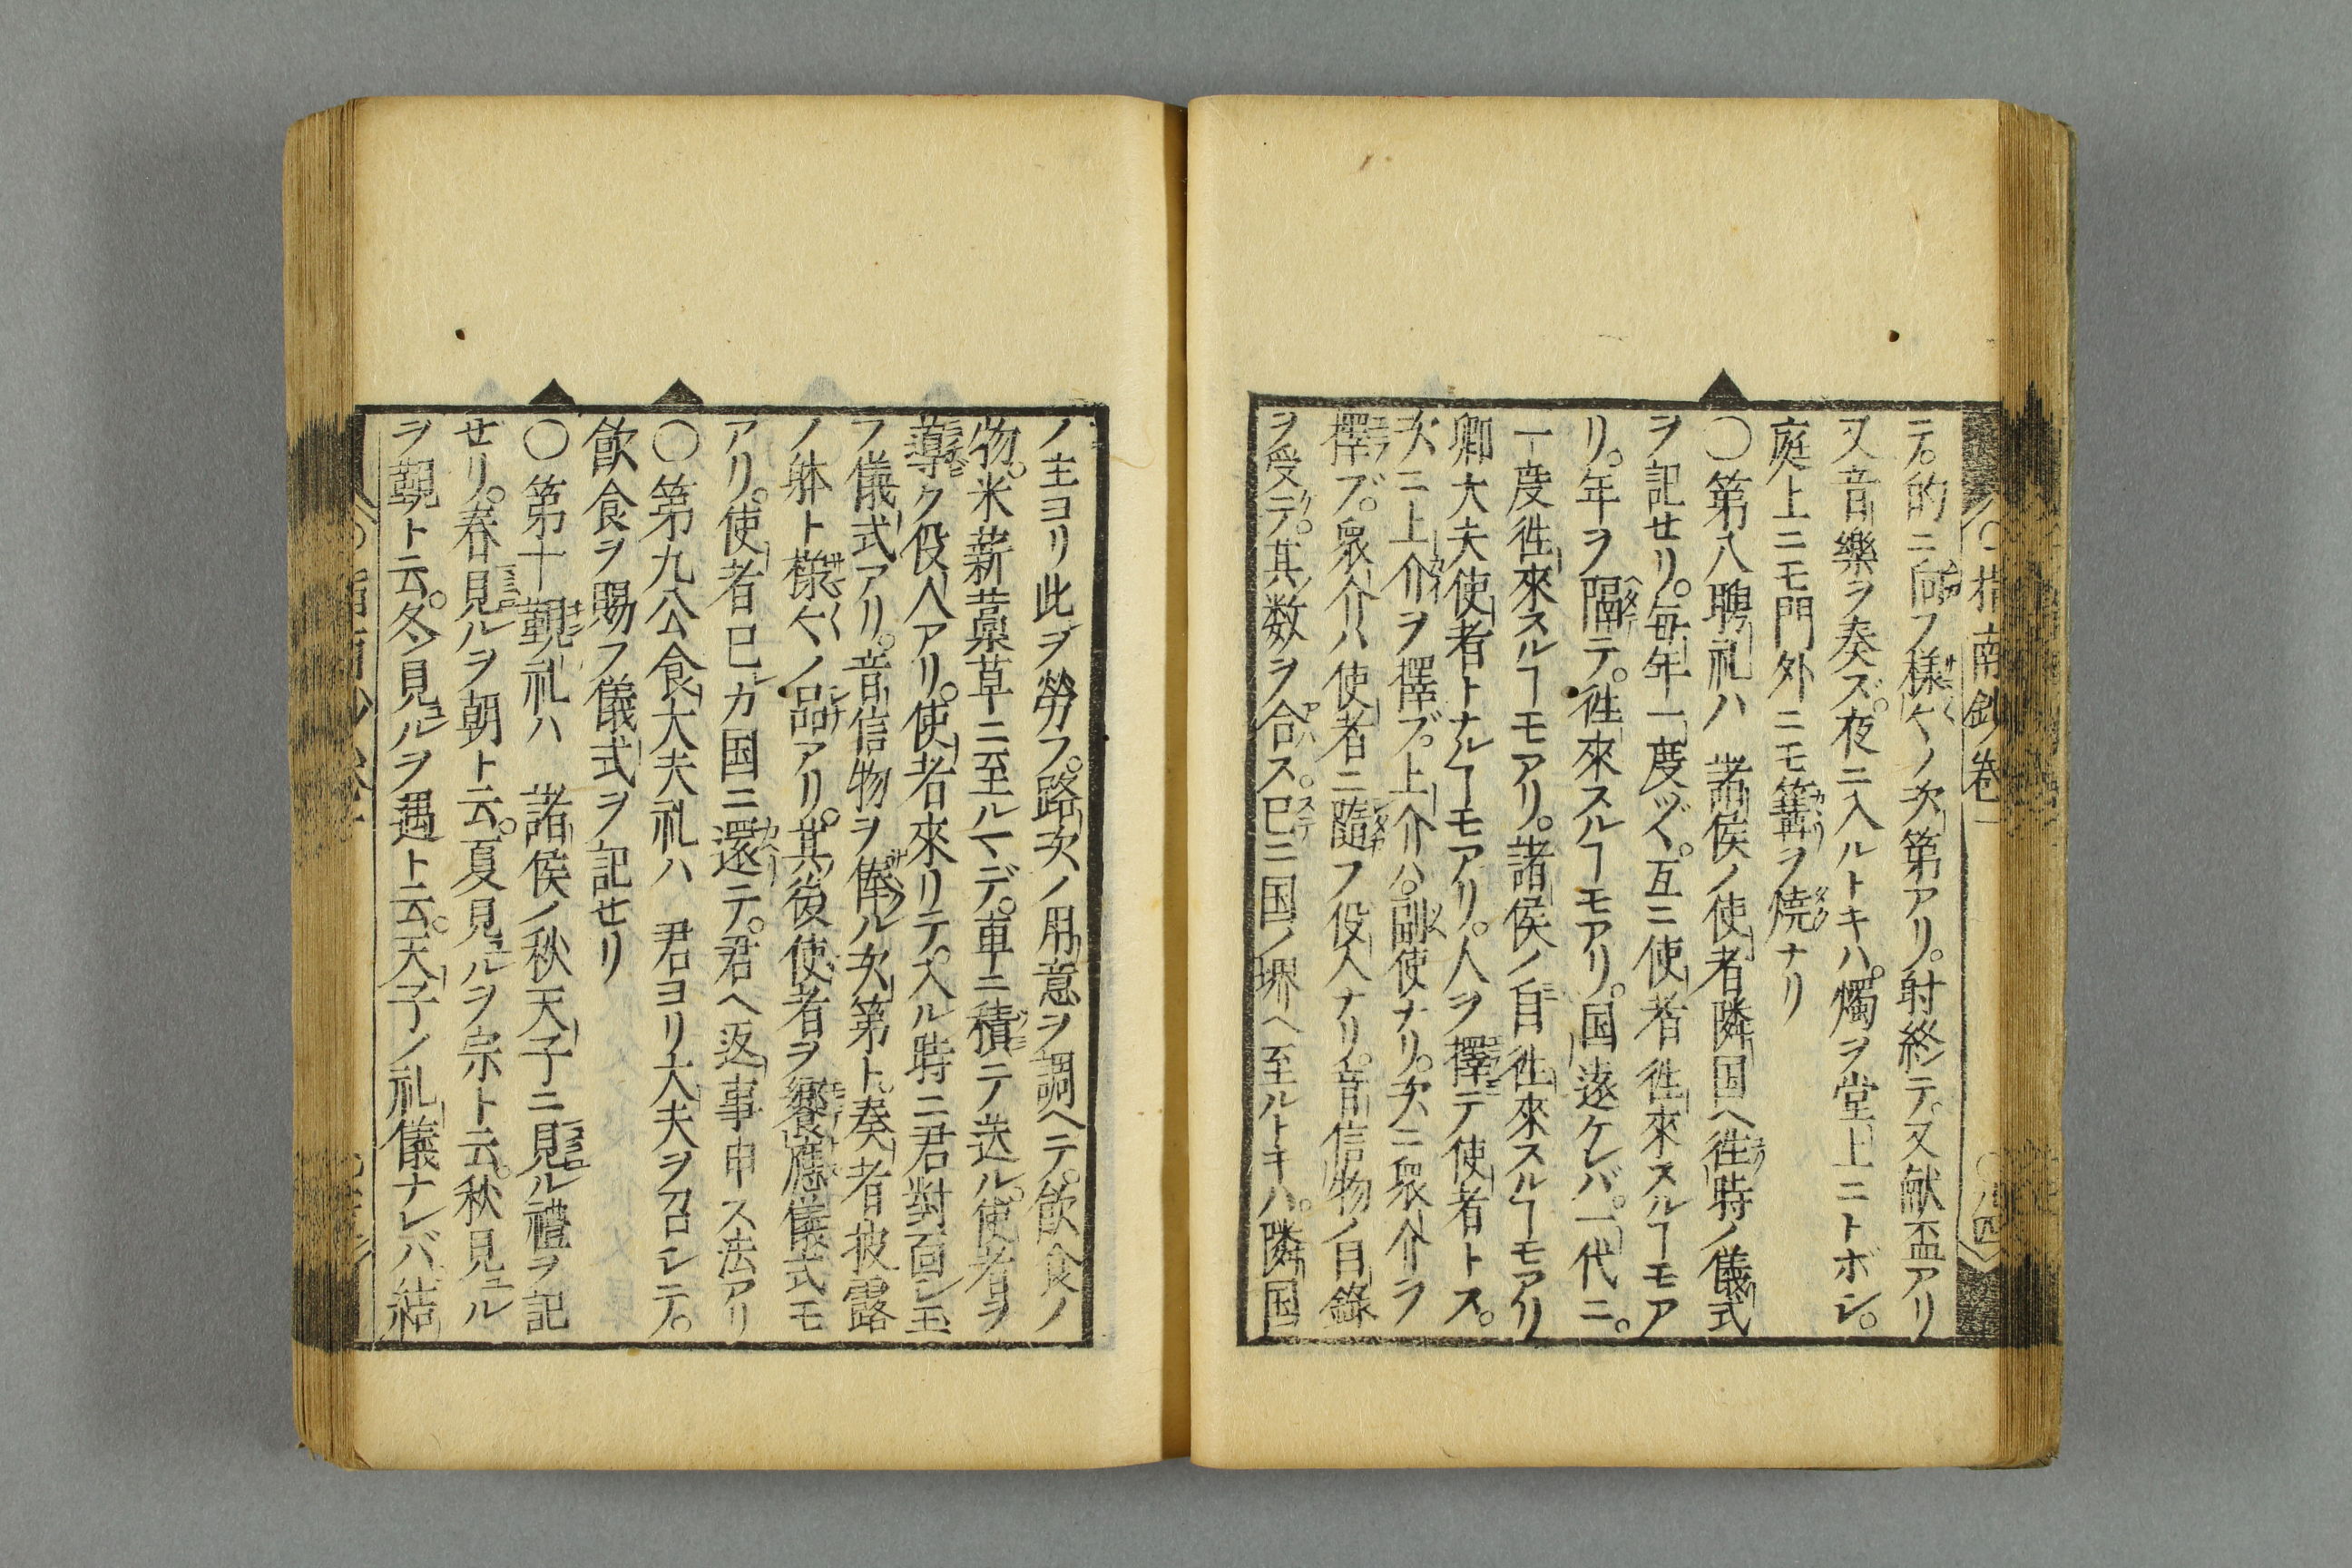 指南鈔卷一
〇八四
テ。的ニ向フ様々ノ次第アリ。射終テ。又献盃アリ
又音樂ヲ奏ズ。夜ニ入ルトキハ。燭ヲ堂上ニトボシ。
庭上ニモ門外ニモ篝ヲ焼ナリ
〇第八聘礼ハ 諸侯ノ使者隣国ヘ徃時ノ儀式
ヲ記せリ。毎年一度ヅヽ。互ニ使者徃來スルヿモア
リ。年ヲ隔テ。徃來スルヿモアリ。国遠ケレバ。一代ニ。
一度徃來スルヿモアリ。諸侯ノ自徃來スルヿモアリ
卿大夫使者トナルヿモアリ。人ヲ擇テ使者トス。
次ニ上介ヲ擇ブ。上介ハ。副使ナリ。次ニ衆介ヲ
擇ブ。衆介ハ使者ニ隨フ役人ナリ。音信物ノ目錄
ヲ受テ。其数ヲ合ス。已ニ国ノ堺ヘ至ルトキハ。隣国
ノ主ヨリ此ヲ勞フ。路次ノ用意ヲ調ヘテ。飲食ノ
物。米薪藁草ニ至ルマデ。車ニ積テ送ル。使者ヲ
導ク役人アリ。使者來リテ。入ル時ニ君對面シ玉
フ儀式アリ。音信物ヲ俸ル次第ト。奏者披露
ノ躰ト様々ノ品アリ。其後使者ヲ饗應儀式モ
アリ。使者已カ国ニ還テ。君ヘ返事申ス法アリ
〇第九公食大夫礼ハ 君ヨリ大夫ヲ召シテ。
飲食ヲ賜フ儀式ヲ記せリ
〇第十覲礼ハ 諸侯ノ秋天子ニ見ル禮ヲ記
せリ。春見ルヲ朝ト云。夏見ルヲ宗ト云。秋見ユル
ヲ覲ト云。冬見ルヲ遇ト云。天子ノ礼儀ナレバ結